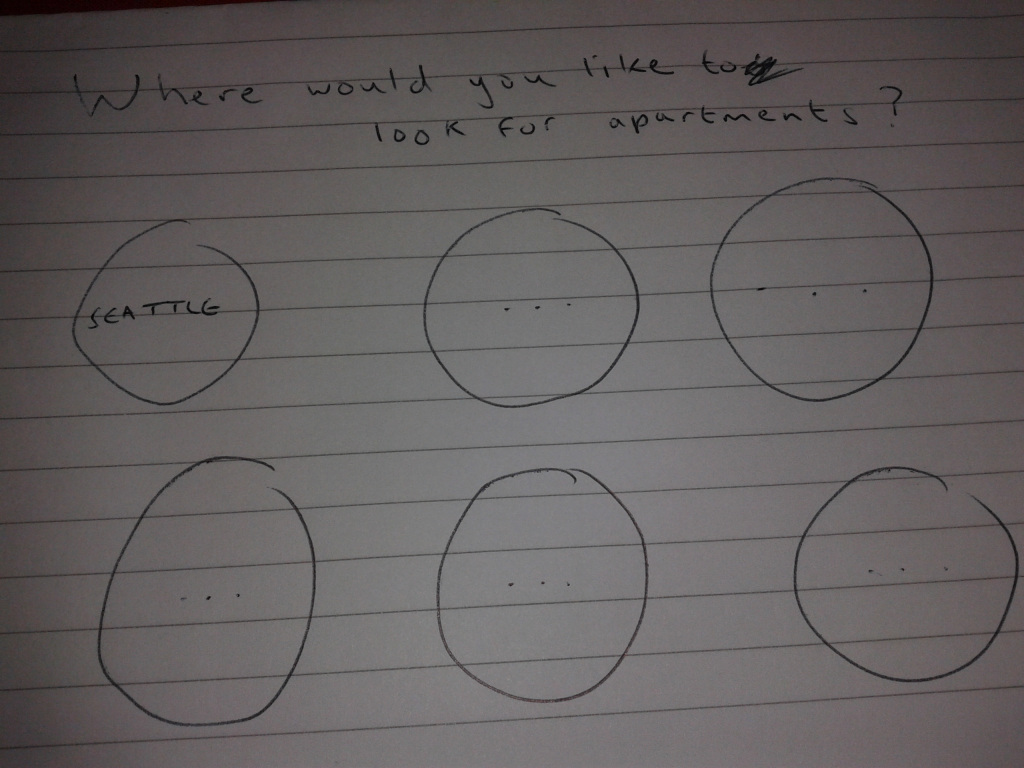 Where would you like to
look for apartments?
SEATTLE ... ...
... ... ...